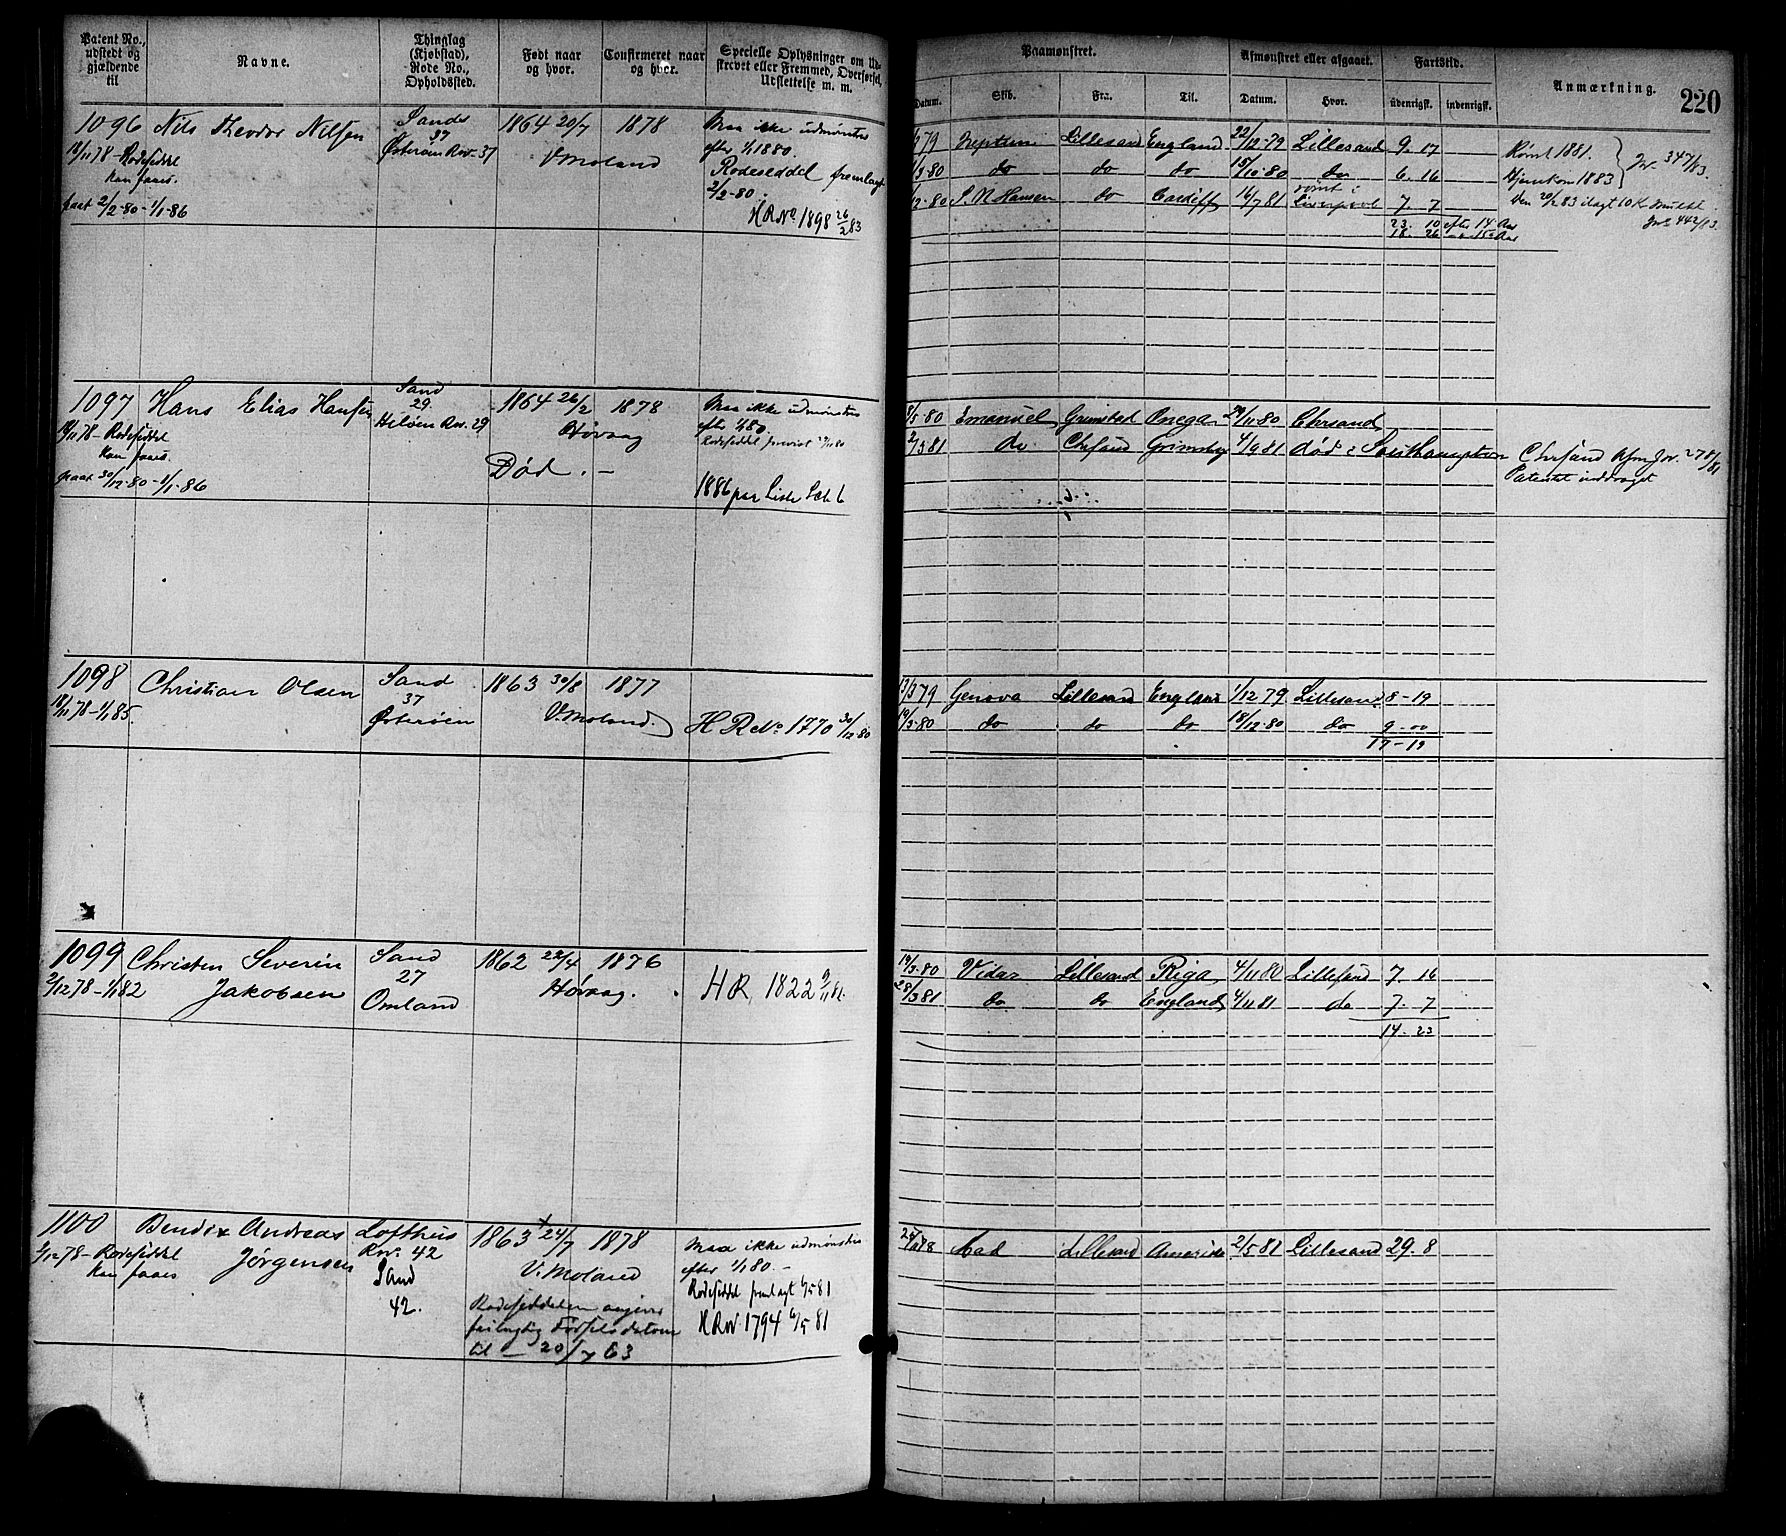 Patent No., udstedt og gjældende til
Navne.
Thinglag (Kjøbstad), Rode No., Opholdssted.
Født naar og hvor.
Confirmeret naar og hvor.
Specielle Oplysninger om Udskrevet eller Fremmed, Overførsel, Udslettelse m. m.
Paamønstret.
Afmønstret eller afgaaet.
Fartstid.
Anmærkning.
220
Datum.
Skib.
Fra.
Til.
Datum.
Hvor.
udenrigsk.
indenrigsk.
1096 Nils Theodor Nilsen
18/11 78 - Rodeseddel
kan faaes.
2/2-80-1/1-86
Sande
37
Østerøen Rov. 37
1864 20/7 1878
V. Moland
Maa ikke udmønstres
efter 1/1 1880.
Rodeseddel fremlagt
2/2-80.
H R No 1898 26/2 83
79 Neptun Lillesand England 22/12-79 Lillesand 9. 17
3-80 do do do 15/10-80 do 6. 16
12-80 J. M. Hansen do Cardiff 14/7 81 rømt i Liverpool 7. 7
23. 10 efter 14 Aar
18. 26 15 Aar
Rømt 1881.
Hjemkom 1883
Jno 347/83.
Den 20/2 83 ilagt 10 Kr mulkt
Jno 442/83.
1097 Hans Elias Hansen
18/11 78 - Rodeseddel
kan faaes.
30/12-80-1/1-86
Sand
29
Hiløen Rov. 29
1864 26/2 1878
Høvaag
Død. -
Maa ikke udmønstres
efter 1/1 80.
Rodeseddel
1886 par Liste
8/5-80 Emanuel Grimstad Onega 20/11 80 Chrsand
2/3 81 do Chrsand Grimsby 4/9 81 død i Southampton
Chrsand
Patentet inddraget
1098 Christian Olsen
18/11 78-1/1 85.
Sand
37
Østerøen
1863 30/8 1877
V. Moland.
H R No. 1770 30/12-80
13/3 79 Genova Lillesand England 1/12 79 Lillesand 8-19
19/3-80 do do do 18/12-80 do 9-00
17-19
1099 Christen Severin
Jakobsen
2/12 78-1/1 82
Sand
27
Omland
1862 22/4 1876
Høvaag.
H R. 1822 9/11 81.
19/3-80 Vidar Lillesand Riga 4/11 80 Lillesand 7. 16
28/3 81 do do England 4/11 81 do 7. 7
14. 23
1100 Bendix Andreas
Jørgensen
2/12 78- Rodeseddel
kan faaes
Lofthus
Rov. 42
Sand
42.
1863 24/7 1878
V. Moland
Rodeseddelen angiver
Fødselsdatoen
til - 20/7 63
Maa ikke udmønstres
efter 1/1 80. -
Rodeseddel fremlagt 6/5 81
H Rov 1794 6/5 81
Lillesand Amerika 2/5 81 Lillesand 29. 8